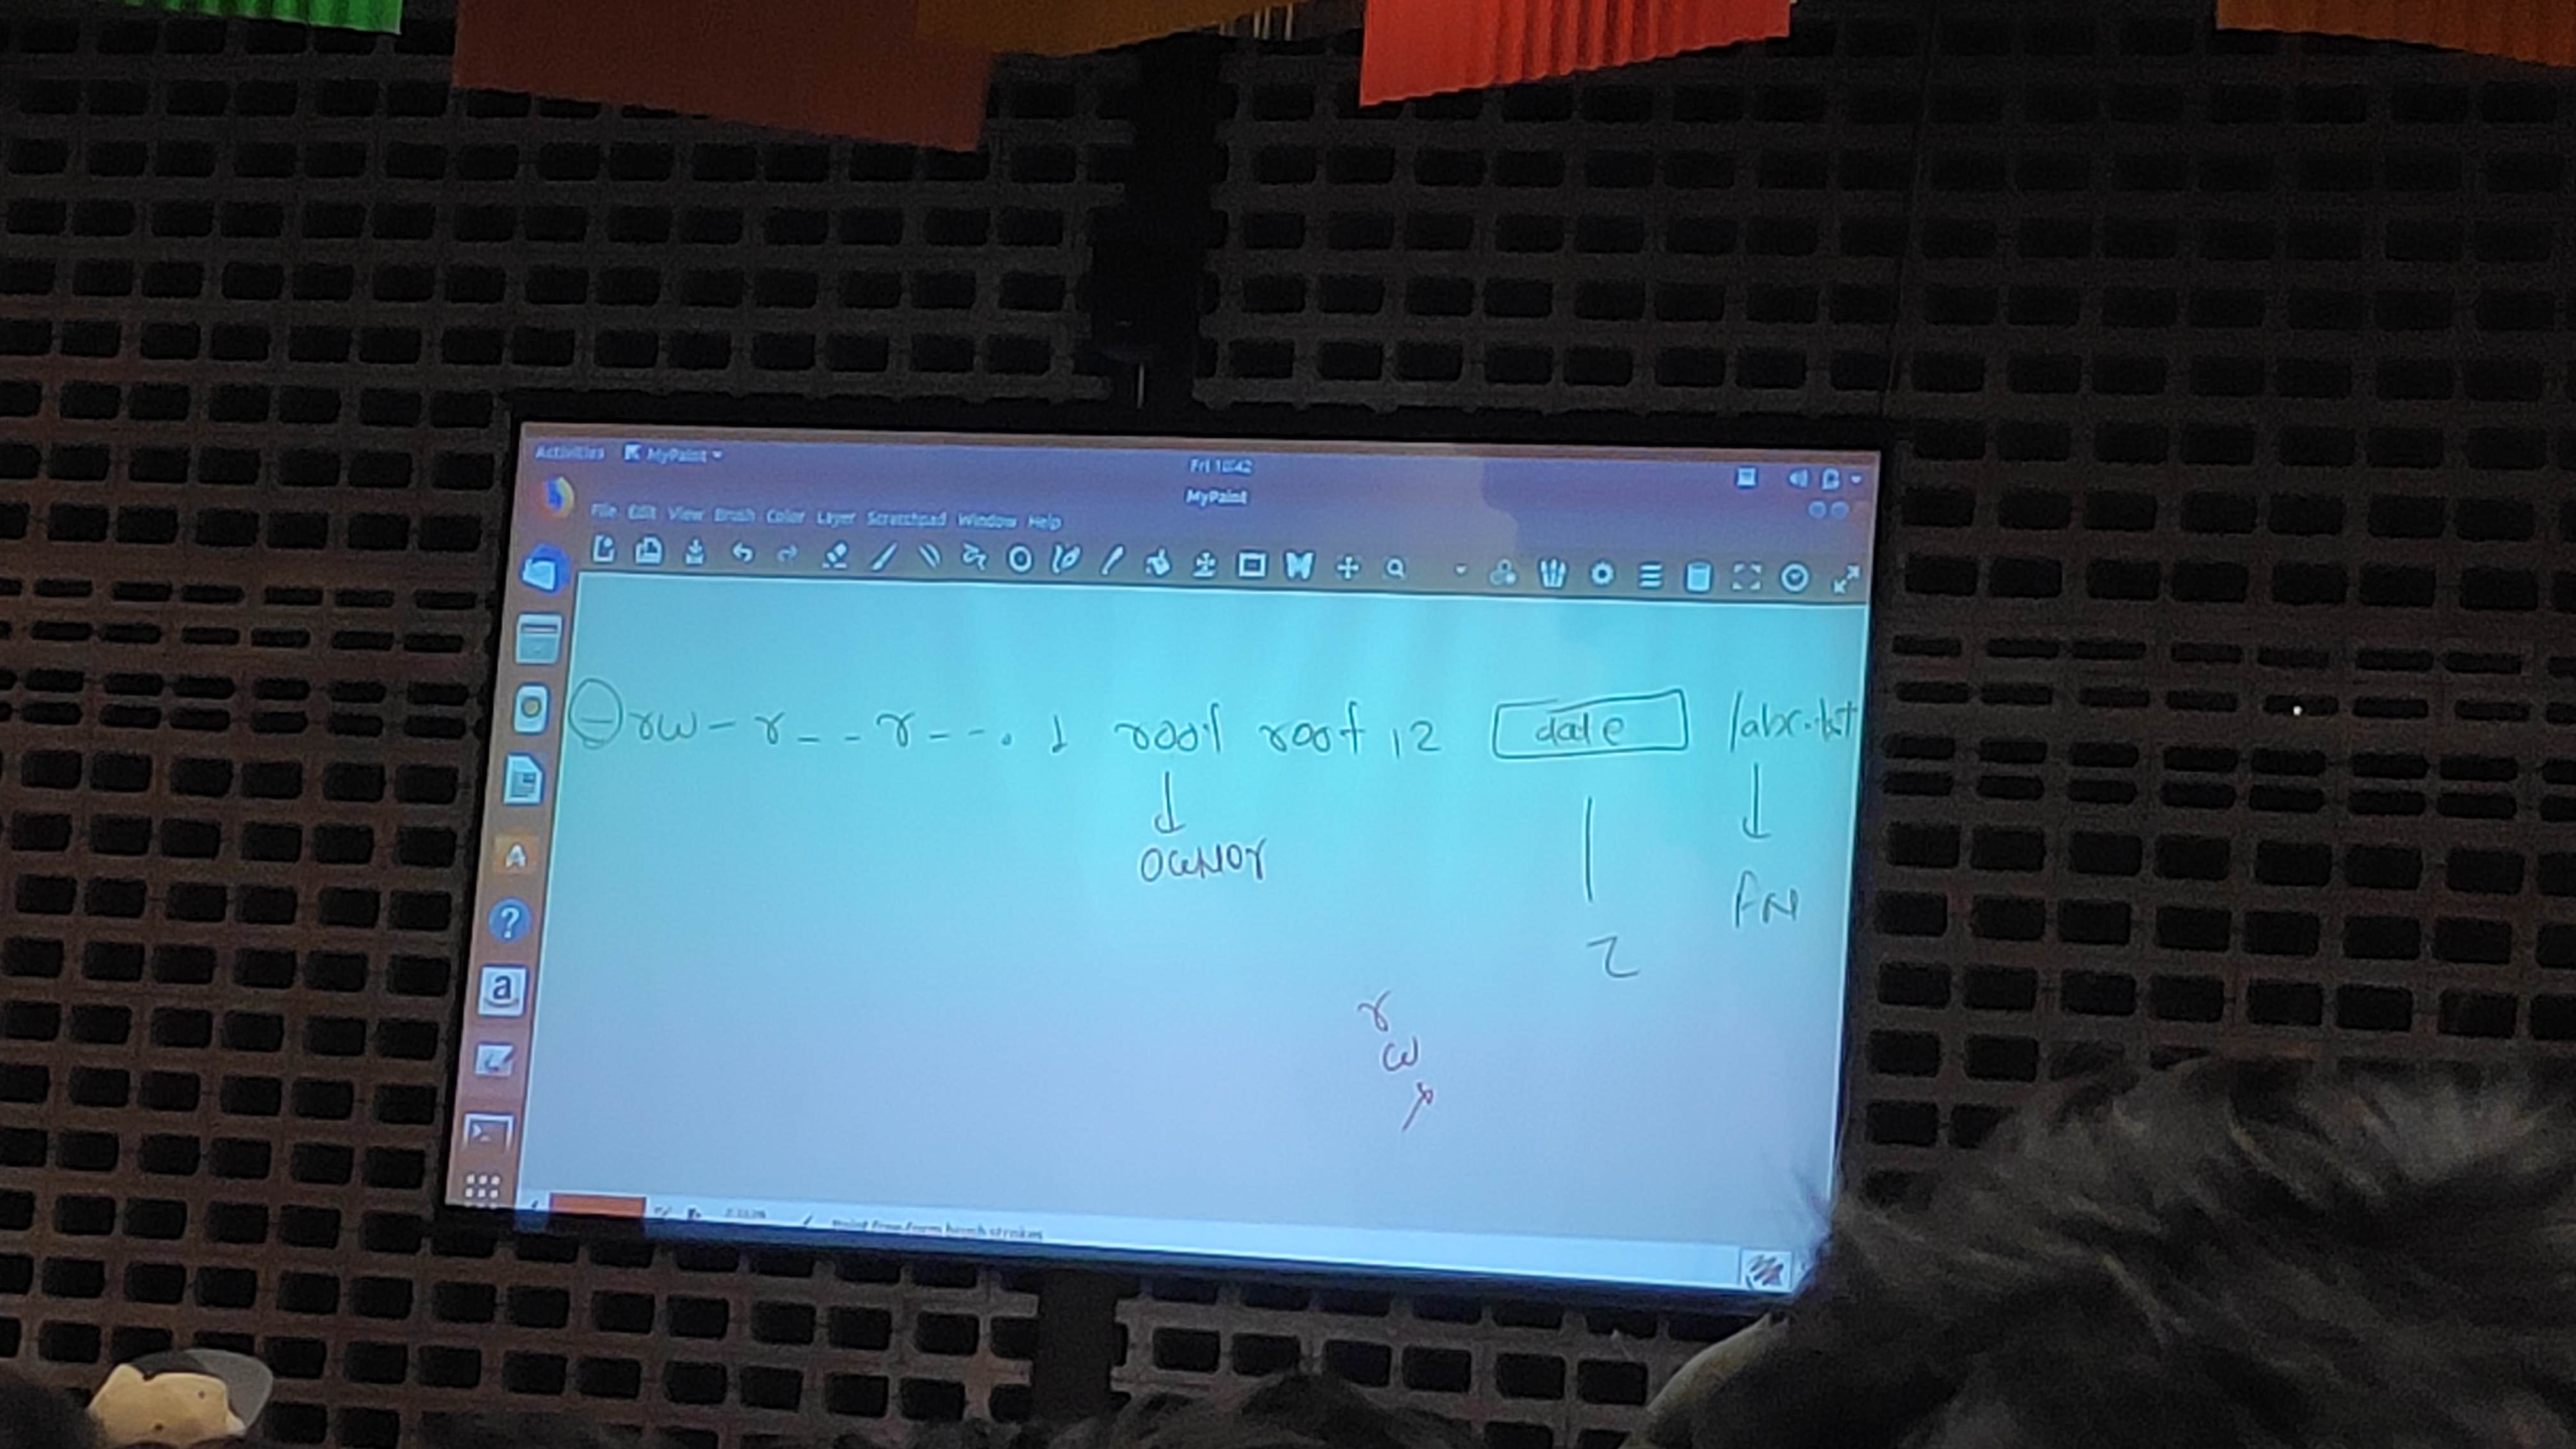 Activities MyPaint
Fri 10:42
MyPaint
File Edit View Brush Color Layer Scratchpad Window Help
-rw-r--r--. 1 root root 12 date /abc.txt
owner
FN
r
w
x
a